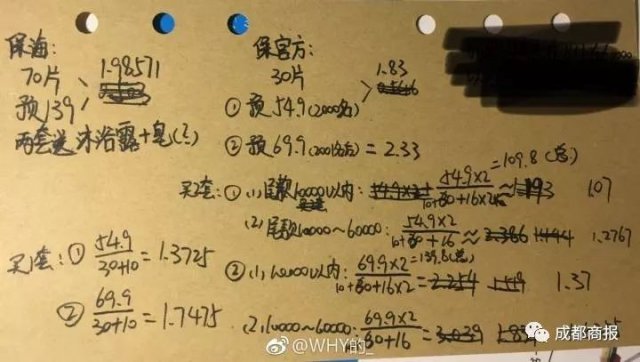 保海:
70片 1.98571
预139
两套送沐浴露+皂(?)
保官方:
30片 1.83
① 预54.9(2000名)
② 预69.9(2001名后)=2.33
买2套:①(1)尾款10000以内: 54.9×2/10+30+16×2 =109.8(总) 1.07
(2)尾款10000~60000: 54.9×2/10+30+16 ≈ 1.2767
买1套:① 54.9/30+10=1.3725
② 69.9/30+10=1.7475
②(1)10000以内: 69.9×2/10+30+16×2 =139.8(总) 1.37
(2)10000~60000: 69.9×2/30+16
@WHY的_
成都商报